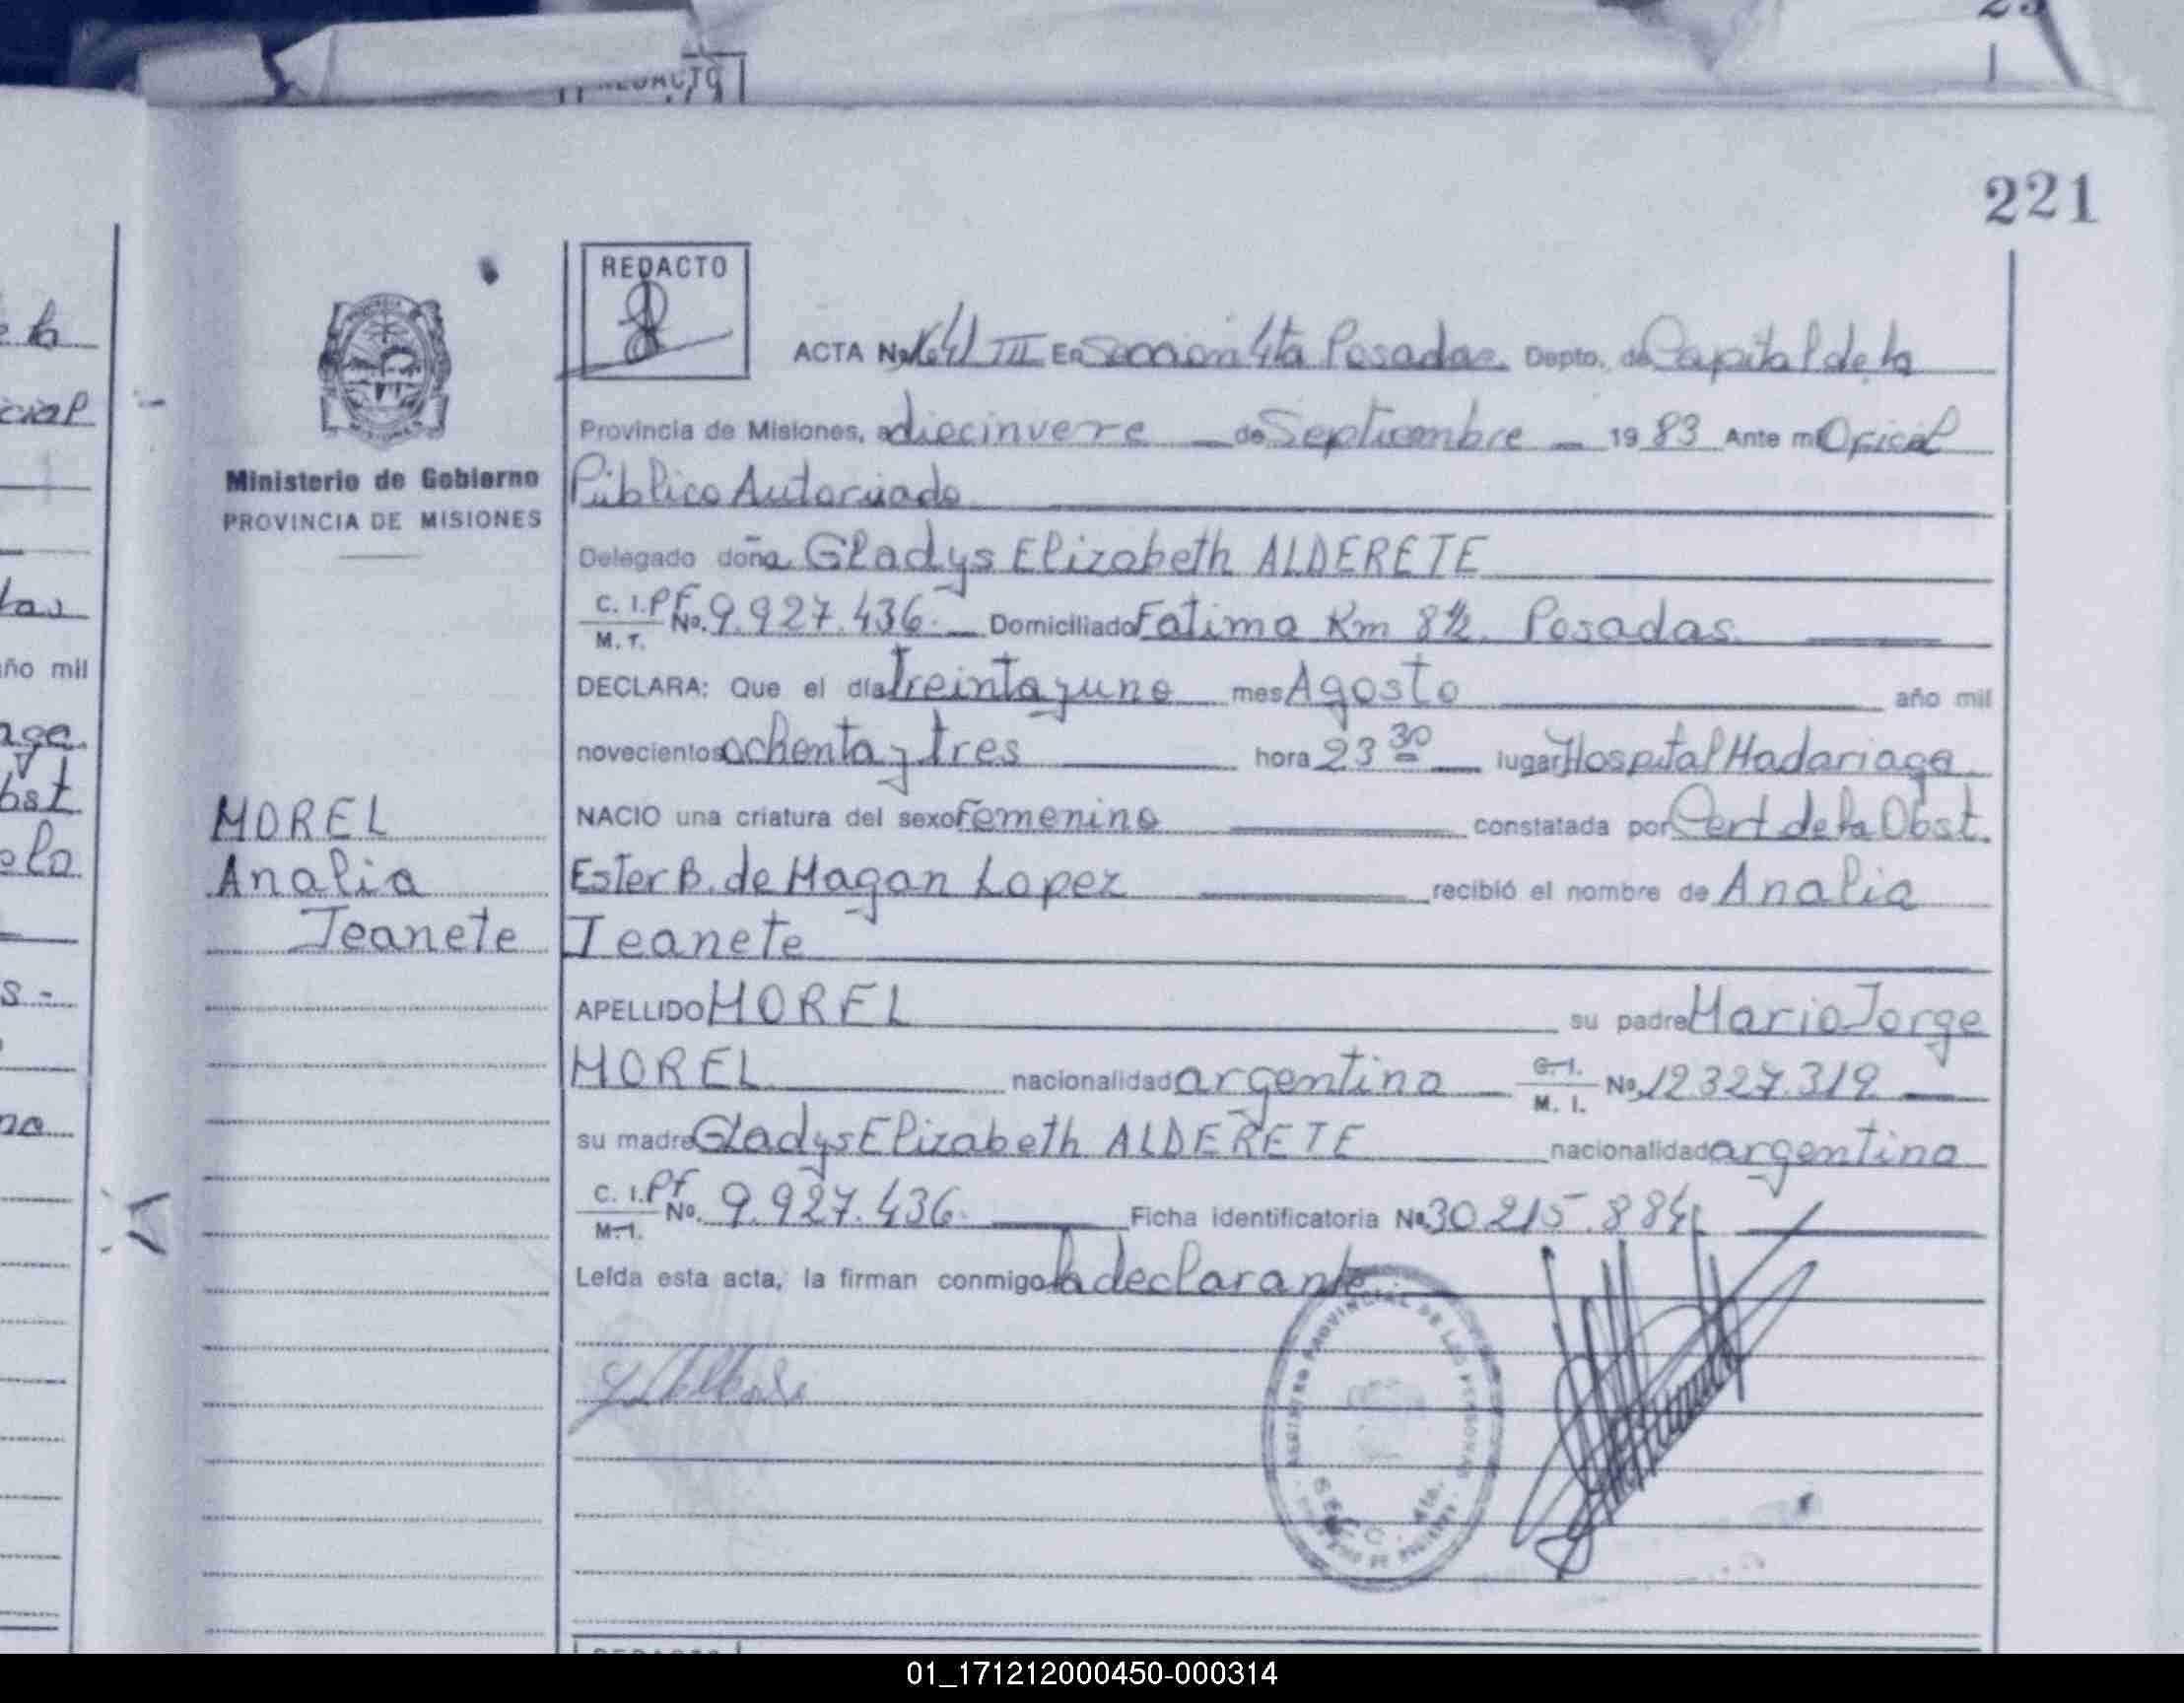 221
REDACTO
ACTA No. 1641 III En Seccion 4ta Posadas. Depto. de Capital de la
Provincia de Misiones, a diecinveve de Septiembre 1983 Ante mi Oficial
Público Autorizado
Ministerio de Gobierno
PROVINCIA DE MISIONES
Delegado doña Gladys Elizabeth ALDERETE
C. I. Pf No. 9.927.436. Domiciliado Fatima Km 8½ Posadas
M. I.
DECLARA: Que el día Treinta y uno mes Agosto año mil
novecientos ochenta y tres hora 23 30 lugar Hospital Madariaga
NACIO una criatura del sexo Femenino constatada por Cert de la Obst.
Ester B. de Magan Lopez recibió el nombre de Analia
Jeanete
MOREL
Analia
Jeanete
APELLIDO MOREL su padre Mario Jorge
MOREL nacionalidad argentina C. I. No. 12.327.319
M. I.
su madre Gladys Elizabeth ALDERETE nacionalidad argentina
C. I. Pf No. 9.927.436. Ficha identificatoria No. 30.215.884
M. I.
Leída esta acta, la firman conmigo la declarante
REGISTRO PROVINCIAL DE LAS PERSONAS
01_171212000450-000314